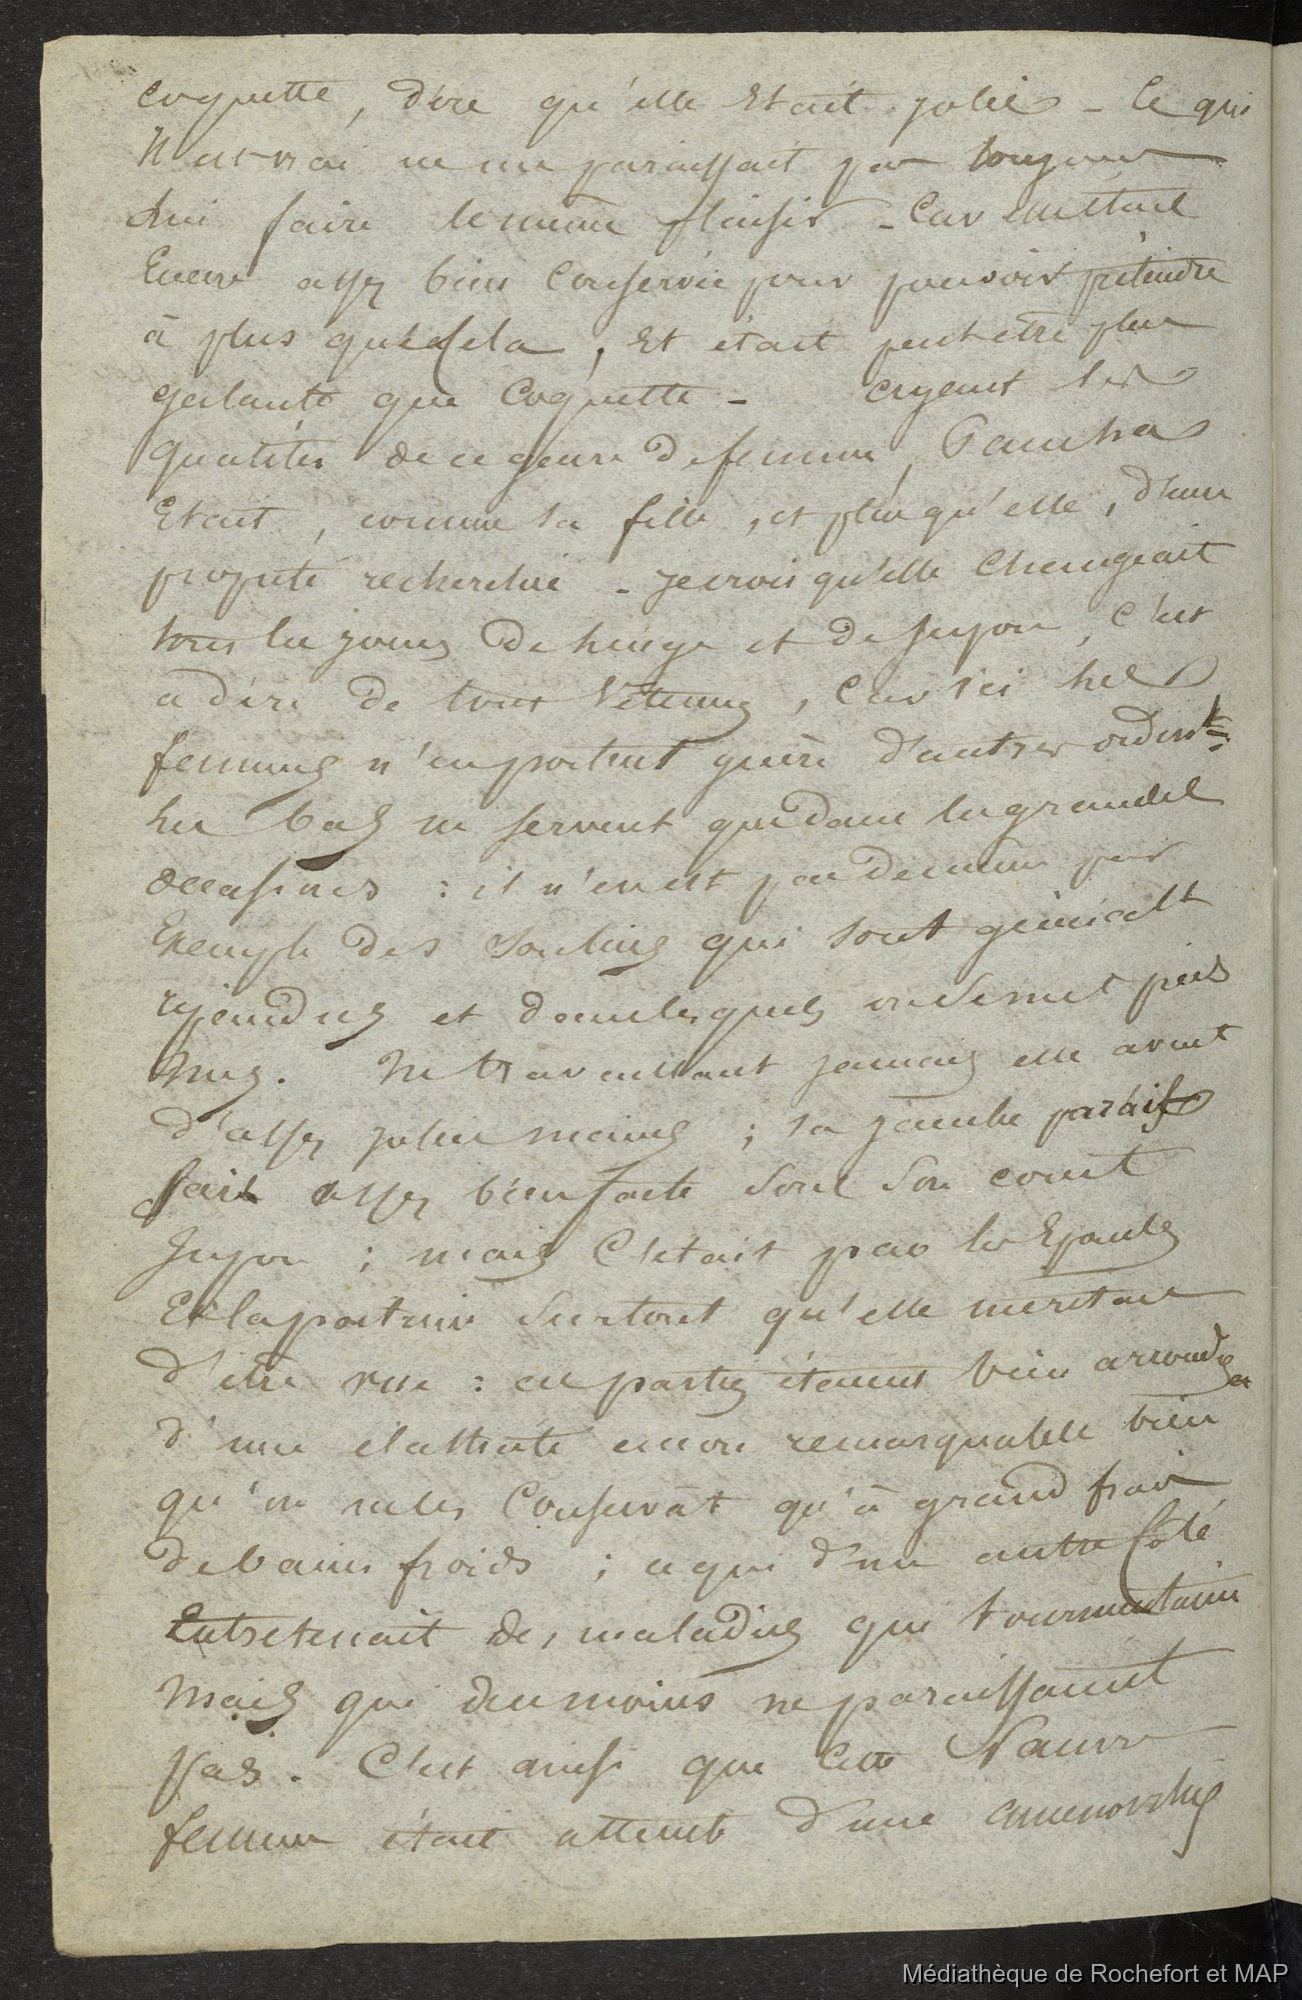 coquette, dire qu'elle Etait jolie - Ce qui
Il est vrai ne me paraissait pas toujours
lui faire le même plaisir - Car elle était
Encore assez bien Conservée pour pouvoir prétendre
à plus que Cela, Et était peut être plus
galante que Coquette - ayant les
qualités de ce genre de femme,
Etait, comme sa fille, et plus qu'elle, d'une
propreté recherchée - je crois qu'elle Changeait
tous les jours de linge et de jupon, c'est
a dire de tout Vetement, Car ici les
femmes n'en portent guère d'autres ordint
les bas ne servent que dans les grandes
occasions : il n'en est pas de même par
Exemple des Souliers qui sont généralt
répandus et dans lesquels on se met pieds
nus. Ne travaillant jamais elle avait
d'assez jolies mains ; sa jambe parais
sait assez bien faite sous son court
jupon ; mais C'était par les Epaules
Et la poitrine surtout qu'elle méritait
d'être vue : ces parties étaient bien arrondies et
d'une élasticité encore remarquable bien
qu'on ne les Conservât qu'à grand frais
de bains froids ; ce qui d'un autre Côté
Entretenait des maladies qui tourmentaient
mais qui du moins ne paraissaient
pas. C'est ainsi que cette Pauvre
femme était atteinte d'une